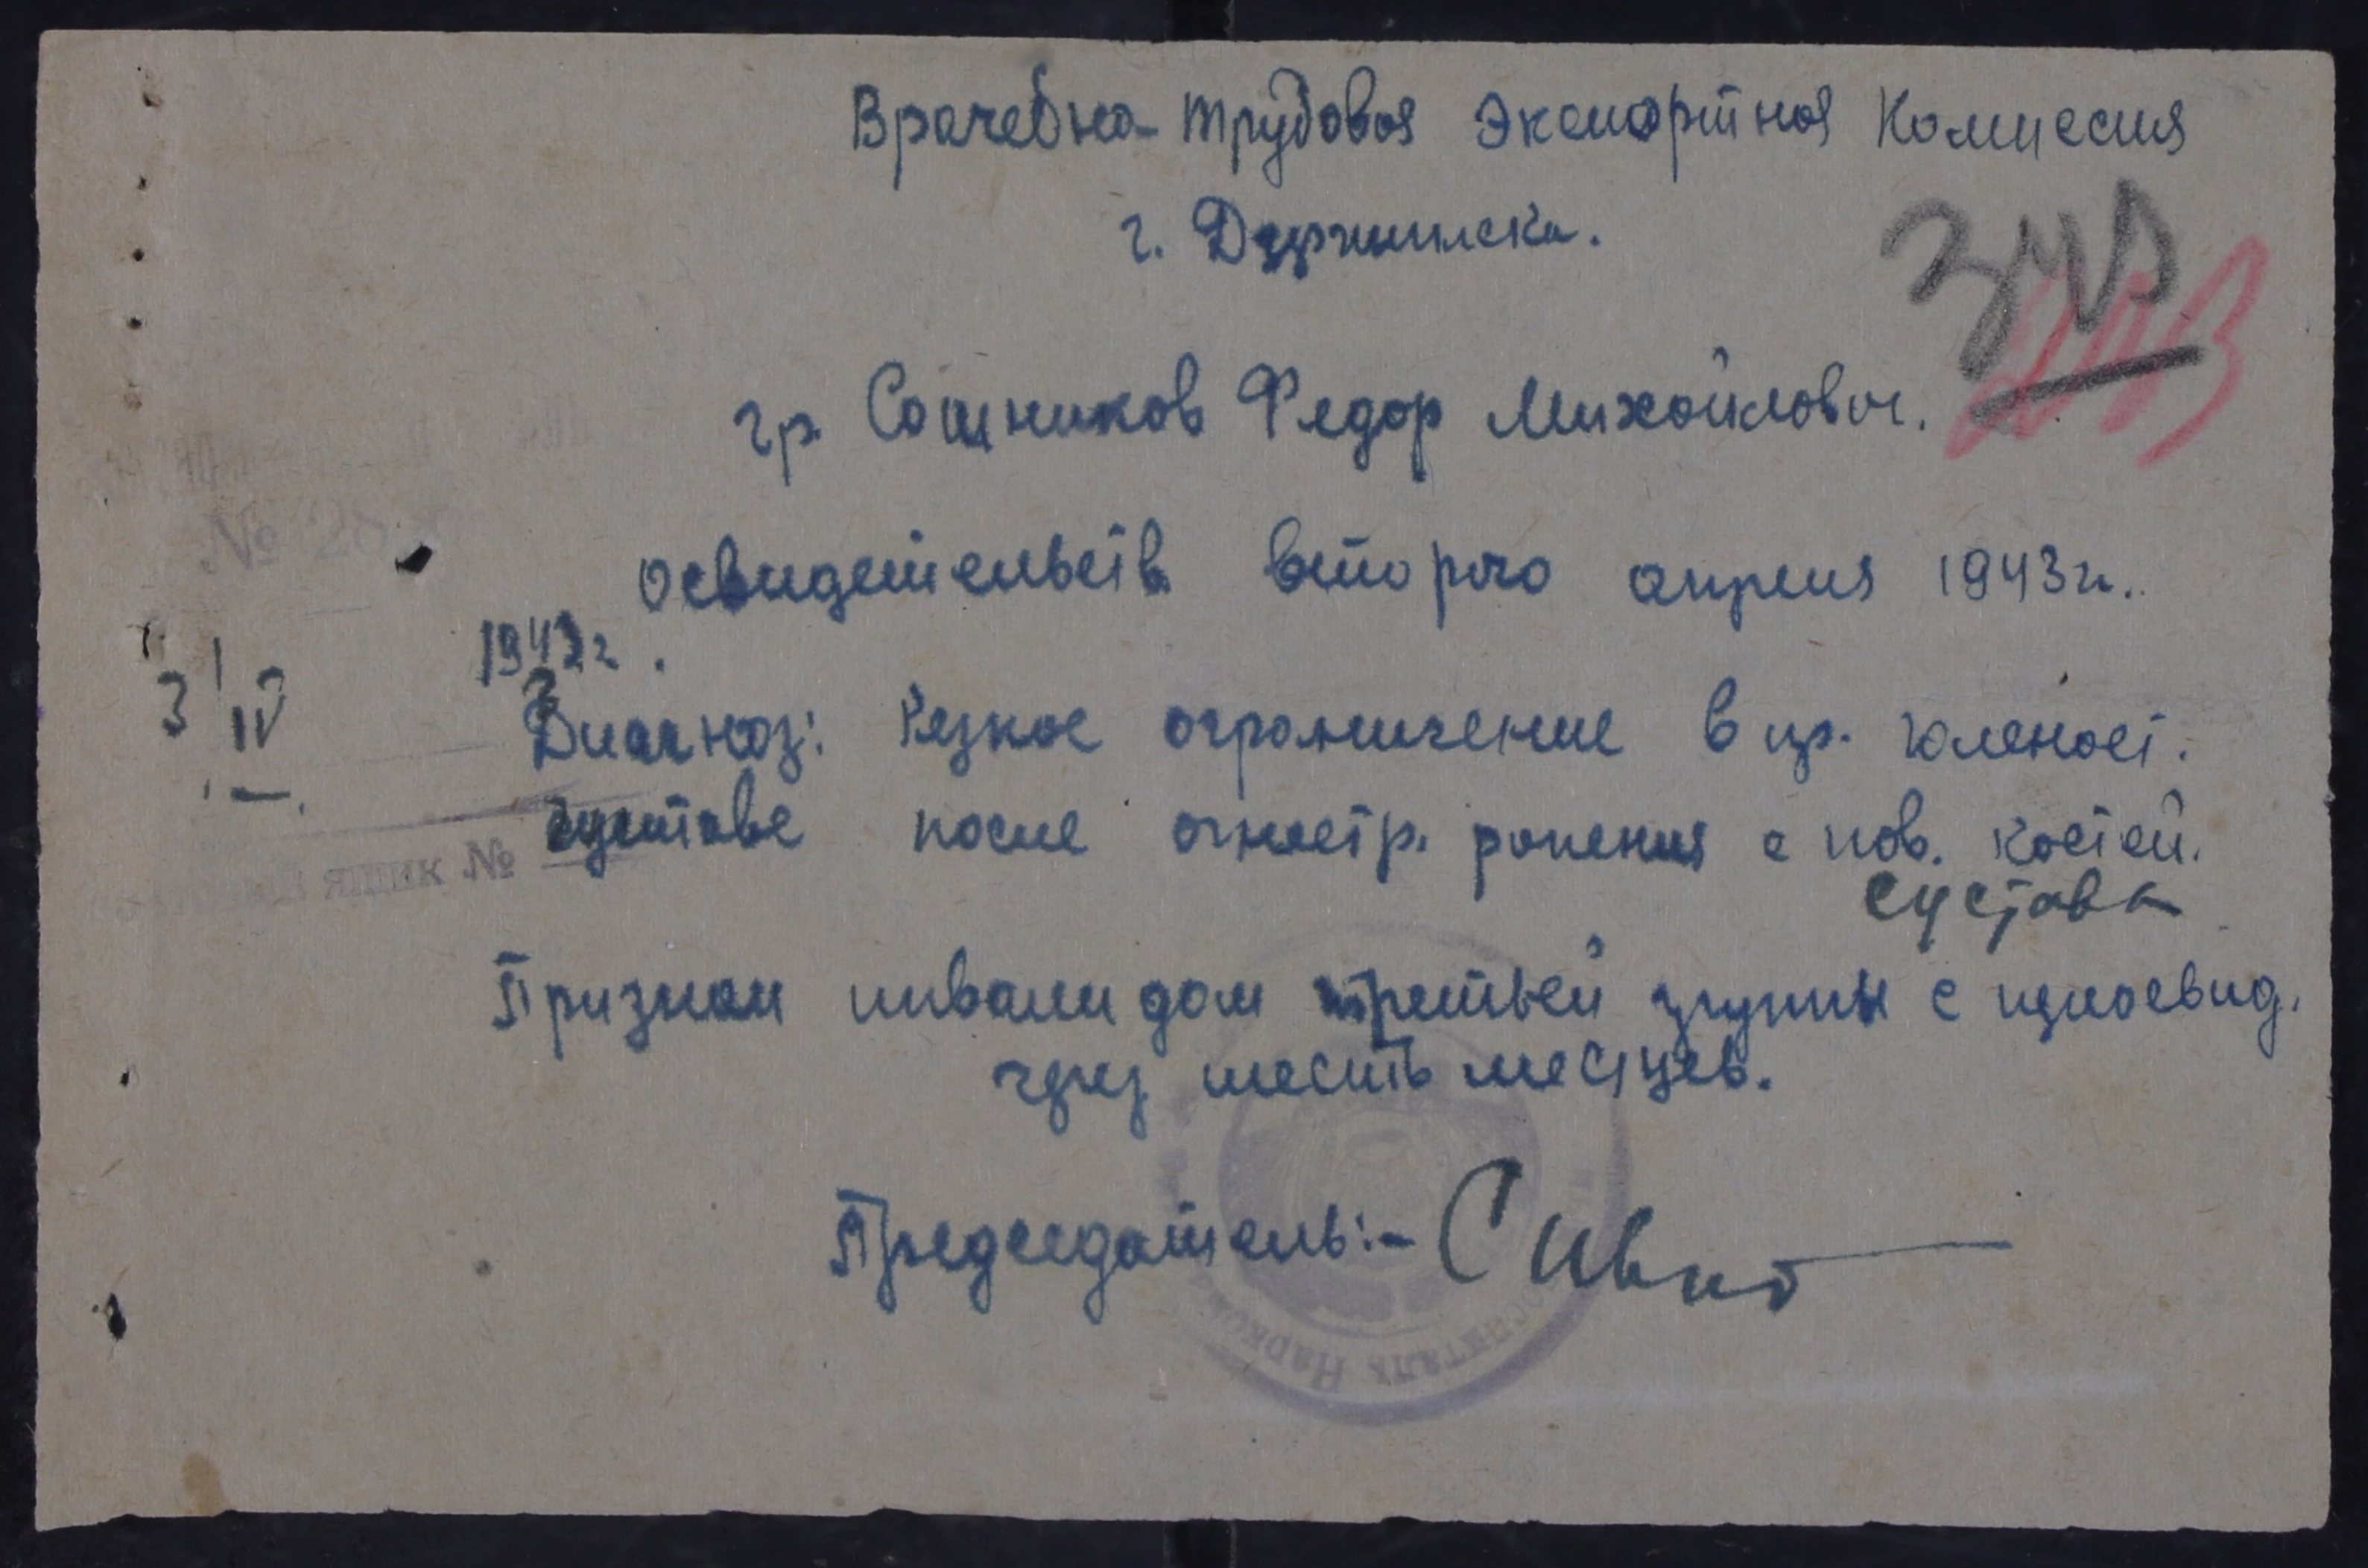 Врачебно-трудовая экспертная комиссия
г. Дзержинска.
гр. Сошников Федор Михайлович.
освидетельств. второго апреля 1943 г.
3/IV 1943 г.
Диагноз: Резкое ограничение в пр. голеност.
суставе после огнестр. ранения с пов. костей.
сустава
Признан инвалидом третьей группы с переосвид.
через шесть месяцев.
Председатель:-
ящик №
№